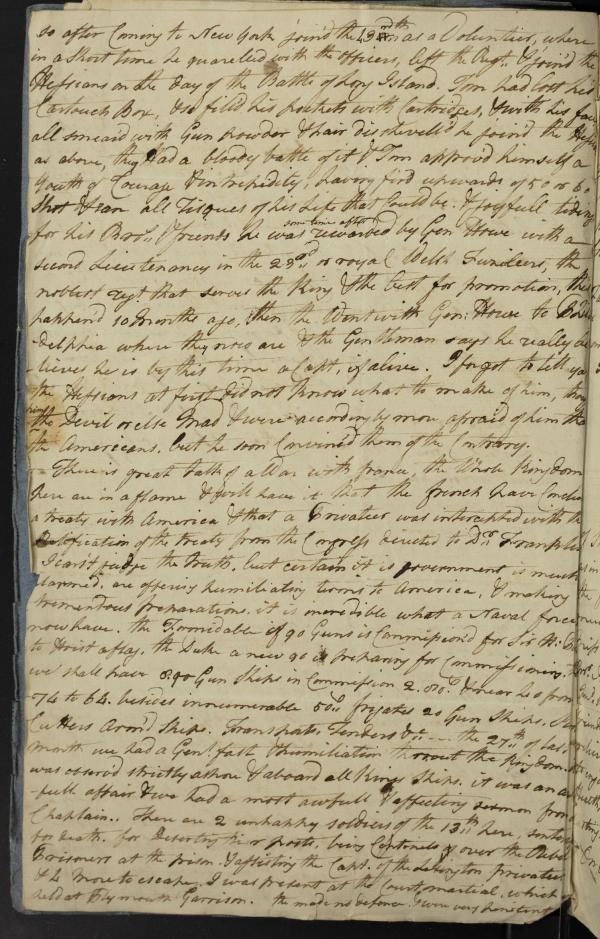 so after Coming to New York join'd the 43rd as a Volunteer, where
in a short time he quareled with the officers, left the Regt. & join'd the
Hessians on the day of the Battle of Long Island. Tom had lost his
Cartouch Box, & so fill'd his pockets with Cartridges, & with his face
all smeard with Gun powder & hair dishevelled he joined the
as above, they Had a bloody battle of it & Tom approv'd himself a
youth of Courage & intrepidity, having fir'd upwards of 50 or 60
Shot & ran all Risques of his Life that could be. & Joyfull tiding
for his Bror. & friends he was some time after rewarded by Gen Howe with a
second Lieutenancy in the 23rd or royal Welsh Fuzileers, the
noblest regt that serves the King & the best for promotion, this
happen'd 10 months ago, then the Went with Gen: Howe to
-delphia where they now are & the Gentleman says he really be
-lieves he is by this time a Capt, if alive. I forgot to tell you
the Hessians at first did not know what to make of him, they
the Devil or else Mad & were accordingly more afraid of him than
the Americans. but he soon Convinced them of the Contrary.
There is great talk of a War with france, the Whole Kingdom
here are in a flame & will have it that the french have
a treaty with America & that a Privateer was intercepted with the
Ratification of the treaty from the Congress directed to Dr. Franklin
I can't judge the truth. but certain it is government is much
alarmed, are offering humiliating terms to America, & making
tremendous preparations. it is incredible what a Naval force
now have. the Formidable of 90 Guns is Commission'd for Sir H:
to Hoist a flag. the Duke a new 90 is preparing for Commissioning.
we shall have 8 90 Gun Ships in Commission & near 40 from
74 to 64. besides innumerable 50s. frigates 20 Gun Ships.
Cutters Arm'd Ships. Transports. Tenders &c. --- the 27th of last
month we had a Genl fast & humiliation thro out the Kingdom.
was observd strictly ashore & aboard all Kings Ships. it was an
-full affair & we had a most awfull & affecting sermon from
Chaplain. There are 2 unhappy soldiers of the 13th here,
for death. for Deserting their posts. being Centinels over the Rebel
Prisoners at the prison. & assisting the Capt. of the Lexington privateer
& 4 more to escape. I was present at the Court martial, which
held at Plymouth Garrison. the made no defence & were very penitent